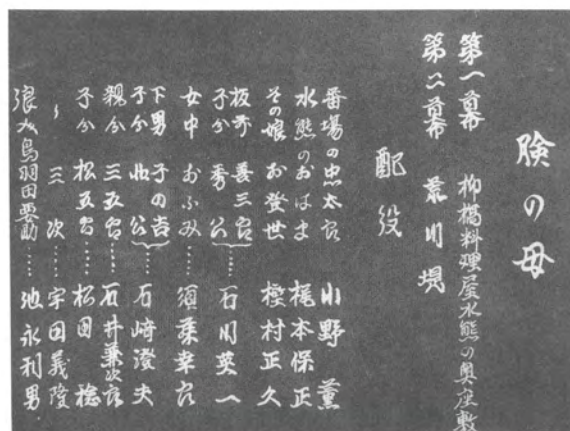 瞼の母
第一幕 柳橋料理屋水熊の奥座敷
第二幕 荒川堤
配役
番場の忠太郎 小野薫
水熊のおはま 梶本保正
その娘 お登世 樫村正久
板前 善三郎
子分 秀公 …… 石川英一
女中 おふみ …… 須藤幸郎
下男 子の吉
子分 松公 …… 石崎澄夫
親分 三五郎 …… 石井兼次郎
子分 松五郎 …… 松田稔
〃 三次 …… 宇田義隆
浪人 鳥羽田要助 …… 池永利男